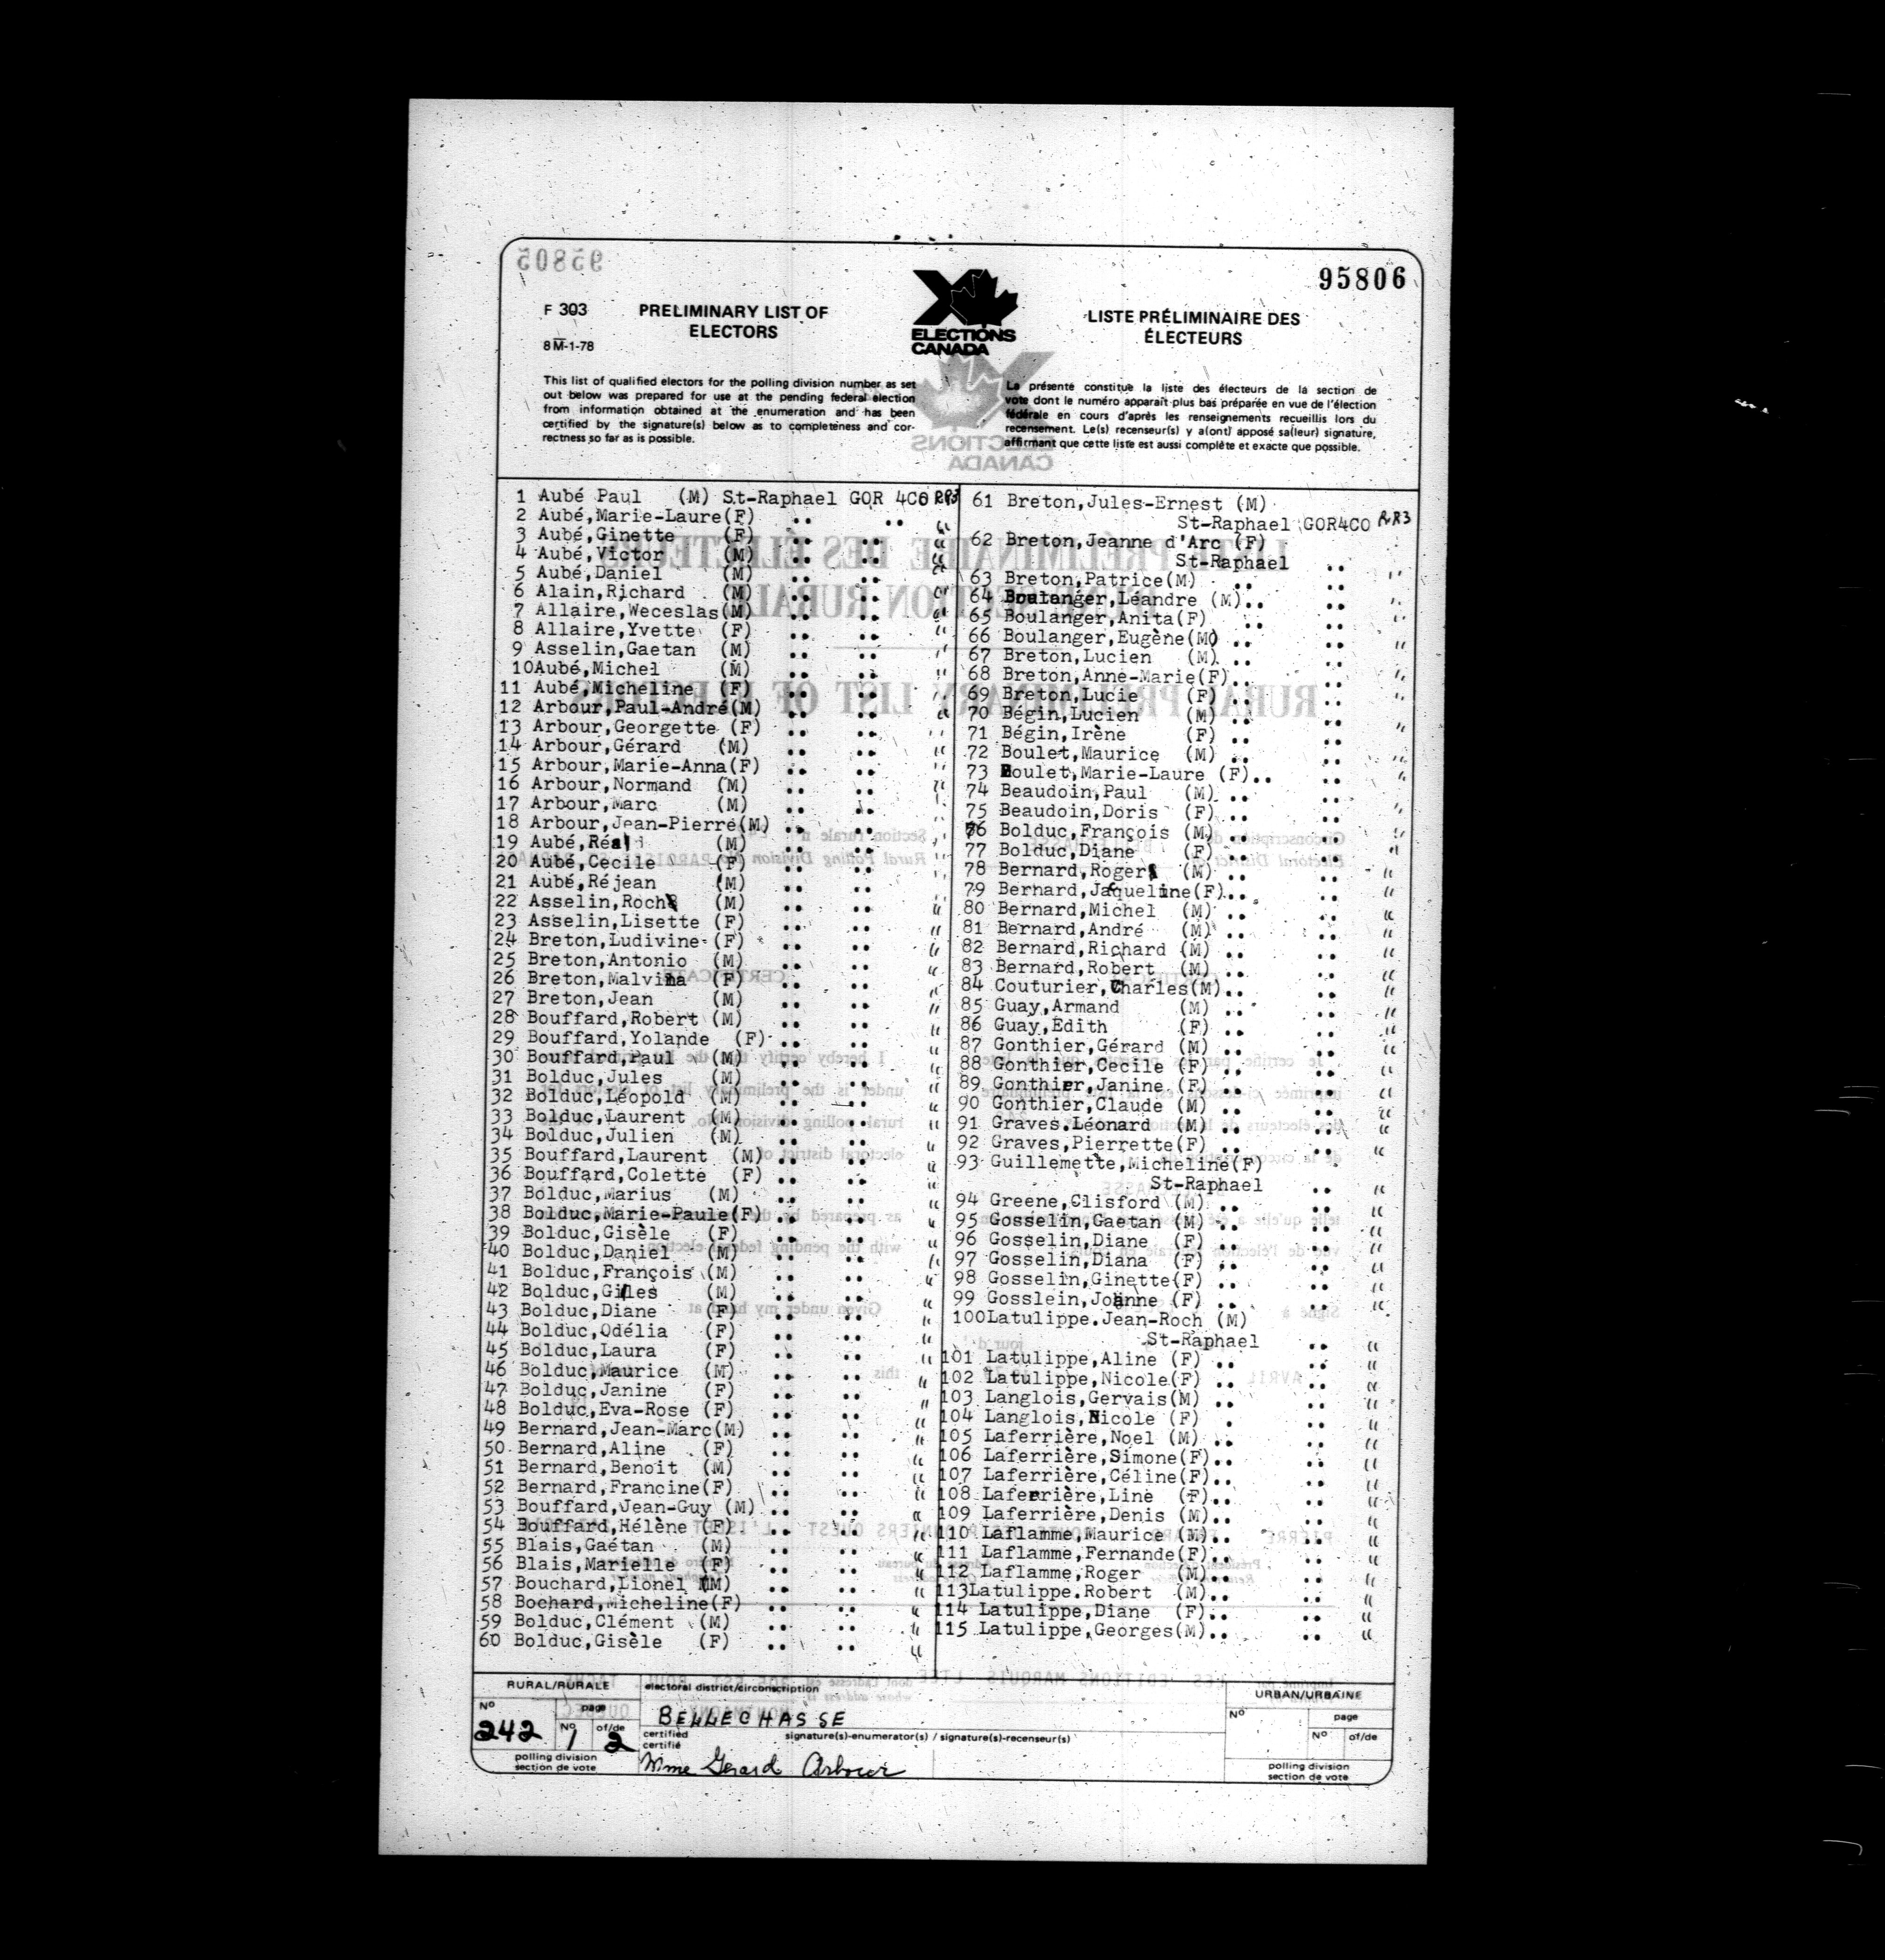 95806
F 303
PRELIMINARY LIST OF
ELECTORS
8M-1-78
ELECTIONS
CANADA
LISTE PRÉLIMINAIRE DES
ÉLECTEURS
This list of qualified electors for the polling division number as set
out below was prepared for use at the pending federal election
from information obtained at the enumeration and has been
certified by the signature(s) below as to completeness and cor-
rectness so far as is possible.
La présente constitue la liste des électeurs de la section de
vote dont le numéro apparaît plus bas préparée en vue de l'élection
fédérale en cours d'après les renseignements recueillis lors du
recensement. Le(s) recenseur(s) y a(ont) apposé sa(leur) signature,
affirmant que cette liste est aussi complète et exacte que possible.
1 Aubé Paul (M) St-Raphael GOR 4C0 RR3
2 Aubé,Marie-Laure(F) .. .. "
3 Aubé,Ginette (F) .. .. "
4 Aubé,Victor (M) .. .. "
5 Aubé,Daniel (M) .. .. "
6 Alain,Richard (M) .. .. "
7 Allaire,Weceslas(M) .. .. "
8 Allaire,Yvette (F) .. .. "
9 Asselin,Gaetan (M) .. .. "
10Aubé,Michel (M) .. .. "
11 Aubé,Micheline (F) .. .. "
12 Arbour,Paul-André(M) .. .. "
13 Arbour,Georgette (F) .. .. "
14 Arbour,Gérard (M) .. .. "
15 Arbour,Marie-Anna(F) .. .. "
16 Arbour,Normand (M) .. .. "
17 Arbour,Marc (M) .. .. "
18 Arbour,Jean-Pierre(M) .. .. "
19 Aubé,Réal (M) .. .. "
20 Aubé,Cécile (F) .. .. "
21 Aubé,Réjean (M) .. .. "
22 Asselin,Roch (M) .. .. "
23 Asselin,Lisette (F) .. .. "
24 Breton,Ludivine (F) .. .. "
25 Breton,Antonio (M) .. .. "
26 Breton,Malvina (F) .. .. "
27 Breton,Jean (M) .. .. "
28 Bouffard,Robert (M) .. .. "
29 Bouffard,Yolande (F) .. .. "
30 Bouffard,Paul (M) .. .. "
31 Bolduc,Jules (M) .. .. "
32 Bolduc,Léopold (M) .. .. "
33 Bolduc,Laurent (M) .. .. "
34 Bolduc,Julien (M) .. .. "
35 Bouffard,Laurent (M) .. .. "
36 Bouffard,Colette (F) .. .. "
37 Bolduc,Marius (M) .. .. "
38 Bolduc,Marie-Paule(F) .. .. "
39 Bolduc,Gisèle (F) .. .. "
40 Bolduc,Daniel (M) .. .. "
41 Bolduc,François (M) .. .. "
42 Bolduc,Gilles (M) .. .. "
43 Bolduc,Diane (F) .. .. "
44 Bolduc,Odélia (F) .. .. "
45 Bolduc,Laura (F) .. .. "
46 Bolduc,Maurice (M) .. .. "
47 Bolduc,Janine (F) .. .. "
48 Bolduc,Eva-Rose (F) .. .. "
49 Bernard,Jean-Marc(M) .. .. "
50 Bernard,Aline (F) .. .. "
51 Bernard,Benoit (M) .. .. "
52 Bernard,Francine(F) .. .. "
53 Bouffard,Jean-Guy (M) .. .. "
54 Bouffard,Hélène (F) .. .. "
55 Blais,Gaétan (M) .. .. "
56 Blais,Marielle (F) .. .. "
57 Bouchard,Lionel (M) .. .. "
58 Bochard,Micheline(F) .. .. "
59 Bolduc,Clément (M) .. .. "
60 Bolduc,Gisèle (F) .. .. "
61 Breton,Jules-Ernest (M)
St-Raphael GOR4CO RR3
62 Breton,Jeanne d'Arc (F)
St-Raphael .. "
63 Breton,Patrice(M) .. .. "
64 Boulanger,Léandre (M).. .. "
65 Boulanger,Anita(F) .. .. "
66 Boulanger,Eugène(M) .. .. "
67 Breton,Lucien (M) .. .. "
68 Breton,Anne-Marie(F).. .. "
69 Breton,Lucie (F) .. .. "
70 Bégin,Lucien (M) .. .. "
71 Bégin,Irène (F) .. .. "
72 Boulet,Maurice (M) .. .. "
73 Boulet,Marie-Laure (F).. .. "
74 Beaudoin,Paul (M) .. .. "
75 Beaudoin,Doris (F) .. .. "
76 Bolduc,François (M) .. .. "
77 Bolduc,Diane (F) .. .. "
78 Bernard,Roger (M) .. .. "
79 Bernard,Jacqueline(F)... .. "
80 Bernard,Michel (M) .. .. "
81 Bernard,André (M) .. .. "
82 Bernard,Richard (M) .. .. "
83 Bernard,Robert (M) .. .. "
84 Couturier,Charles(M).. .. "
85 Guay,Armand (M) .. .. "
86 Guay,Edith (F) .. .. "
87 Gonthier,Gérard (M) .. .. "
88 Gonthier,Cecile (F) .. .. "
89 Gonthier,Janine (F) .. .. "
90 Gonthier,Claude (M) .. .. "
91 Graves.Léonard (M) .. .. "
92 Graves,Pierrette(F) .. .. "
93 Guillemette,Micheline(F)
St-Raphael .. "
94 Greene,Clisford (M) .. .. "
95 Gosselin,Gaetan (M) .. .. "
96 Gosselin,Diane (F) .. .. "
97 Gosselin,Diana (F) .. .. "
98 Gosselin,Ginette(F) .. .. "
99 Gosslein,Joanne (F) .. .. "
100Latulippe.Jean-Roch (M)
St-Raphael .. "
101 Latulippe,Aline (F) .. .. "
102 Latulippe,Nicole(F) .. .. "
103 Langlois,Gervais(M) .. .. "
104 Langlois,Nicole (F) . .. "
105 Laferrière,Noel (M) .. .. "
106 Laferrière,Simone(F).. .. "
107 Laferrière,Céline(F).. .. "
108 Laferrière,Line (F).. .. "
109 Laferrière,Denis (M).. .. "
110 Laflamme,Maurice (M).. .. "
111 Laflamme,Fernande(F).. .. "
112 Laflamme,Roger (M).. .. "
113Latulippe.Robert (M).. .. "
114 Latulippe,Diane (F).. .. "
115 Latulippe,Georges(M).. .. "
RURAL/RURALE
electoral district/circonscription
URBAN/URBAINE
No page
BELLECHASSE
242 No 1 of/de 2
certified
certifié
signature(s)-enumerator(s) / signature(s)-recenseur(s)
polling division
section de vote
Mme Gerard Arbour
No page
No of/de
polling division
section de vote